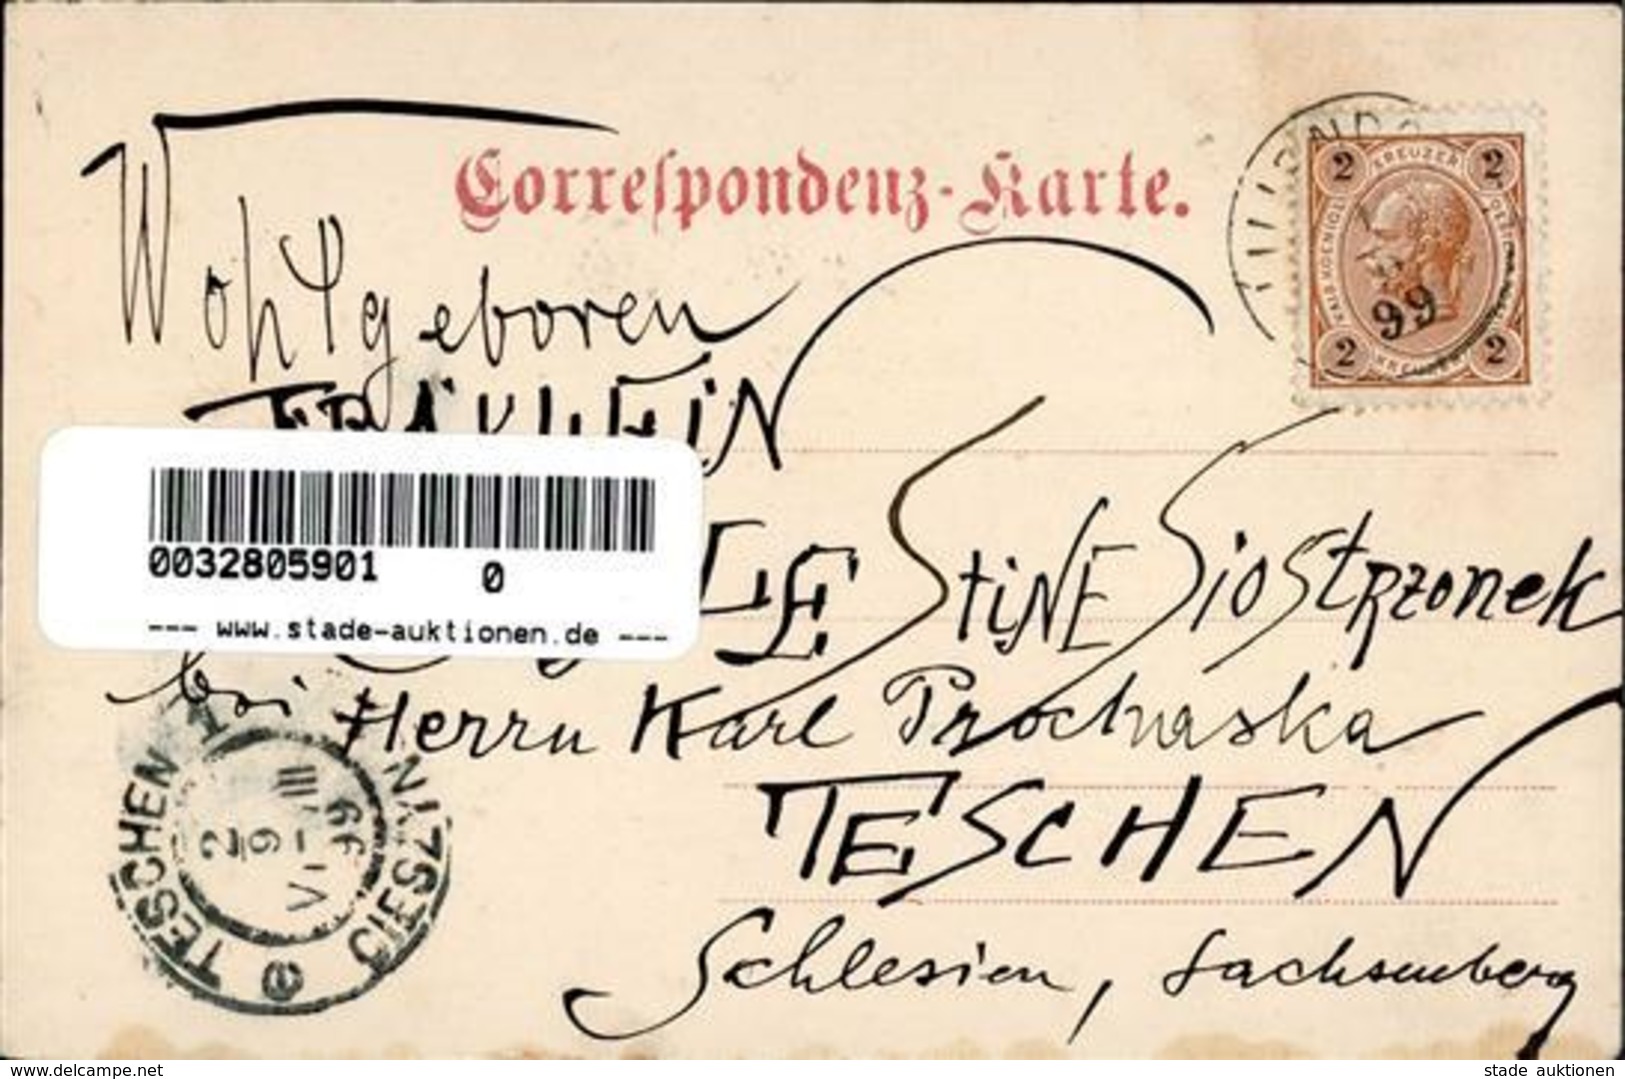 Correspondenz-Karte.
Wohlgeboren
FRÄULEIN
LESTiNE SioStRzonek
bei Herrn Karl Prochaska
TESCHEN
Schlesien, Sachsenberg
2 KREUZER 2
99
2 KREUZER 2
0032805901 0
--- www.stade-auktionen.de ---
TESCHEN 1
CIESZYN
2
9-VIII
99
www.delcampe.net
stade auktionen